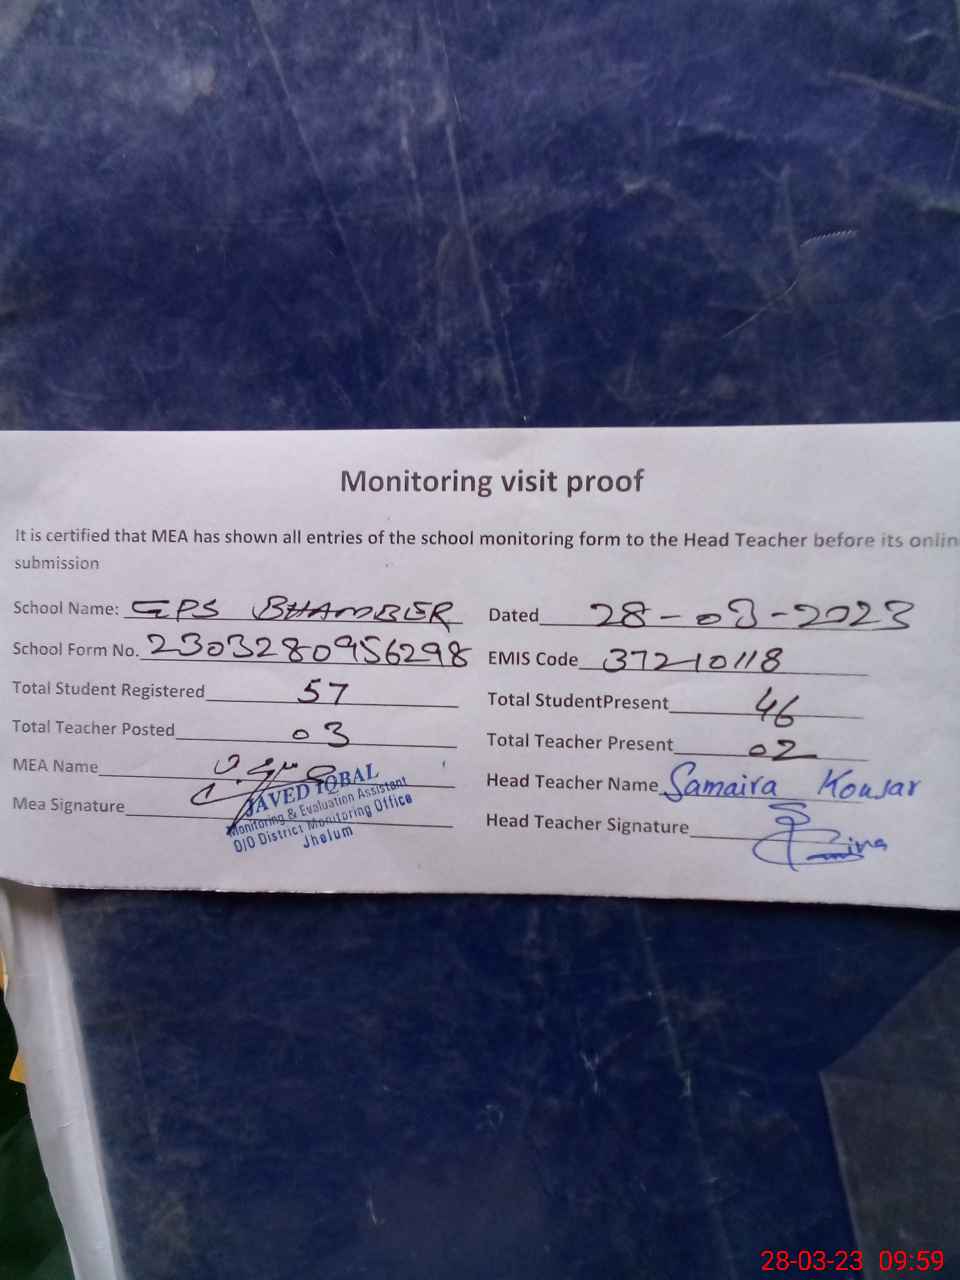 Monitoring visit proof
It is certified that MEA has shown all entries of the school monitoring form to the Head Teacher before its onlin
submission
School Name: GPS BHAMBER
Dated 28-03-2023
School Form No. 2303280956298
EMIS Code 37210118
Total Student Registered 57
Total StudentPresent 46
Total Teacher Posted 03
Total Teacher Present 02
MEA Name
Head Teacher Name Samaira Kousar
Mea Signature
JAVED IQBAL
Monitoring & Evaluation Assistant
O/O District Monitoring Office
Jhelum
Head Teacher Signature
28-03-23 09:59